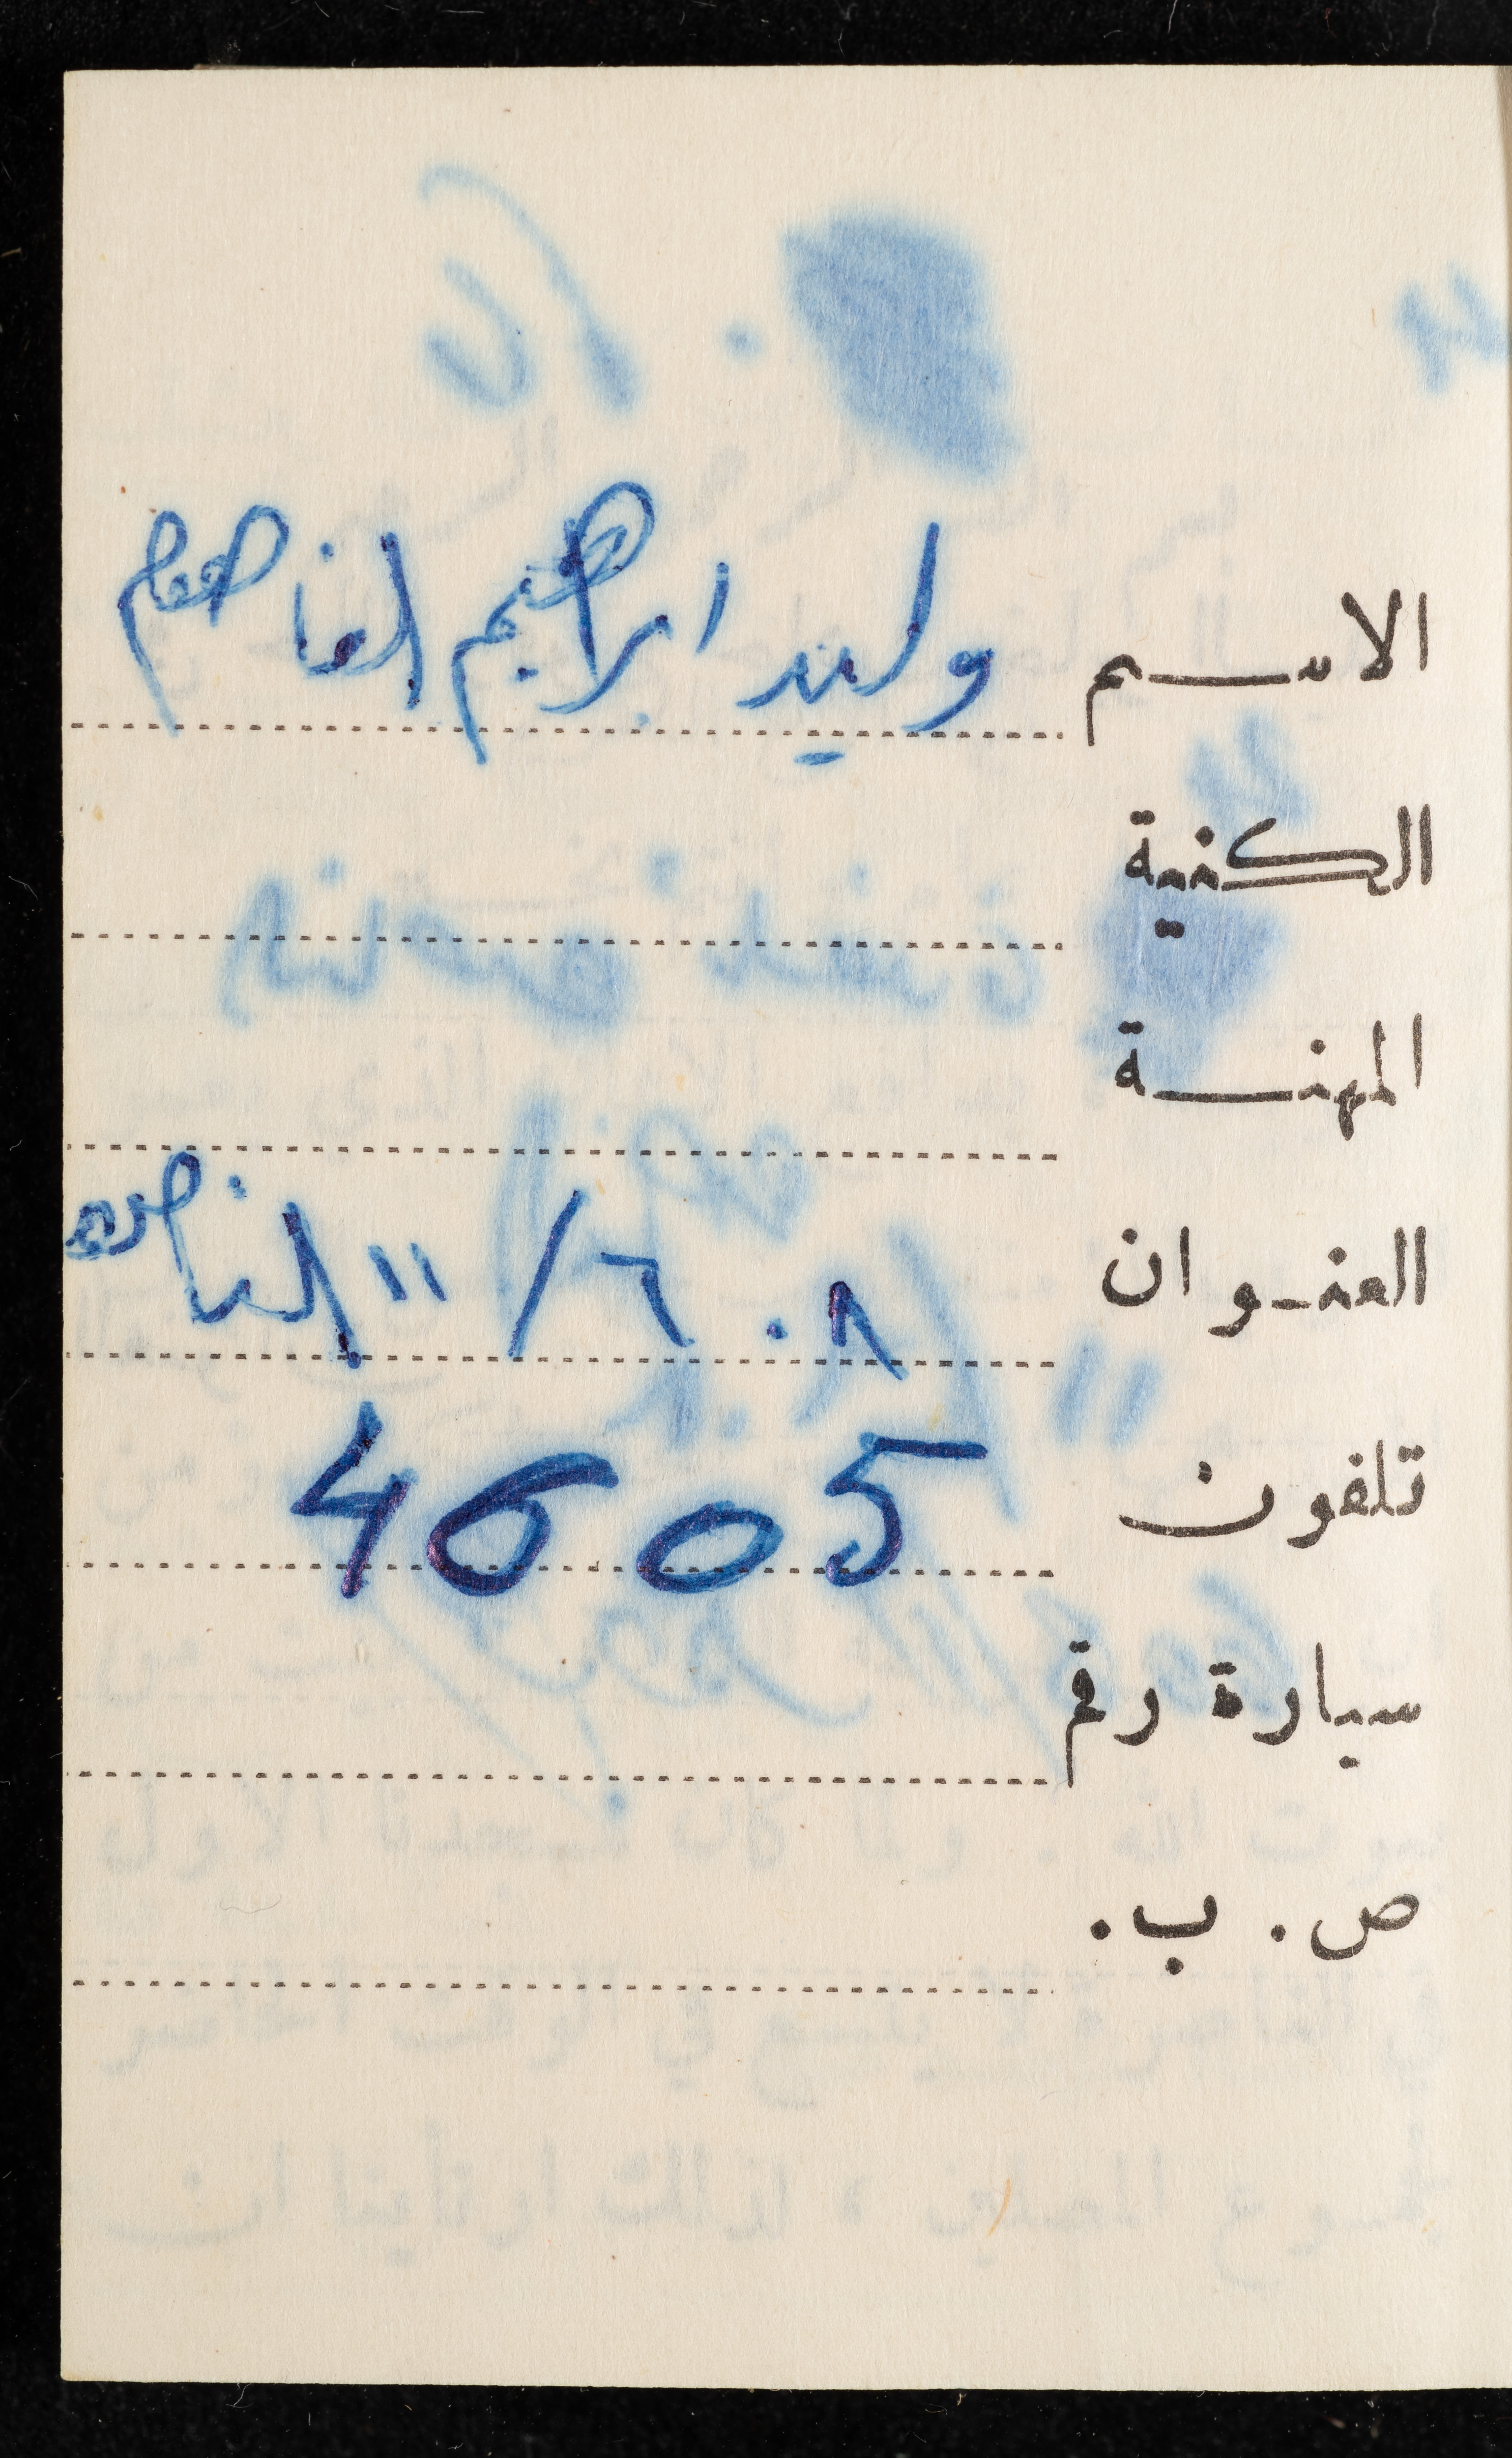 الاسم وليد ابراهيم
الكنية
المهنة
العنوان ٨٠٦/١١
تلفون 4605
سيارة رقم
ص. ب.